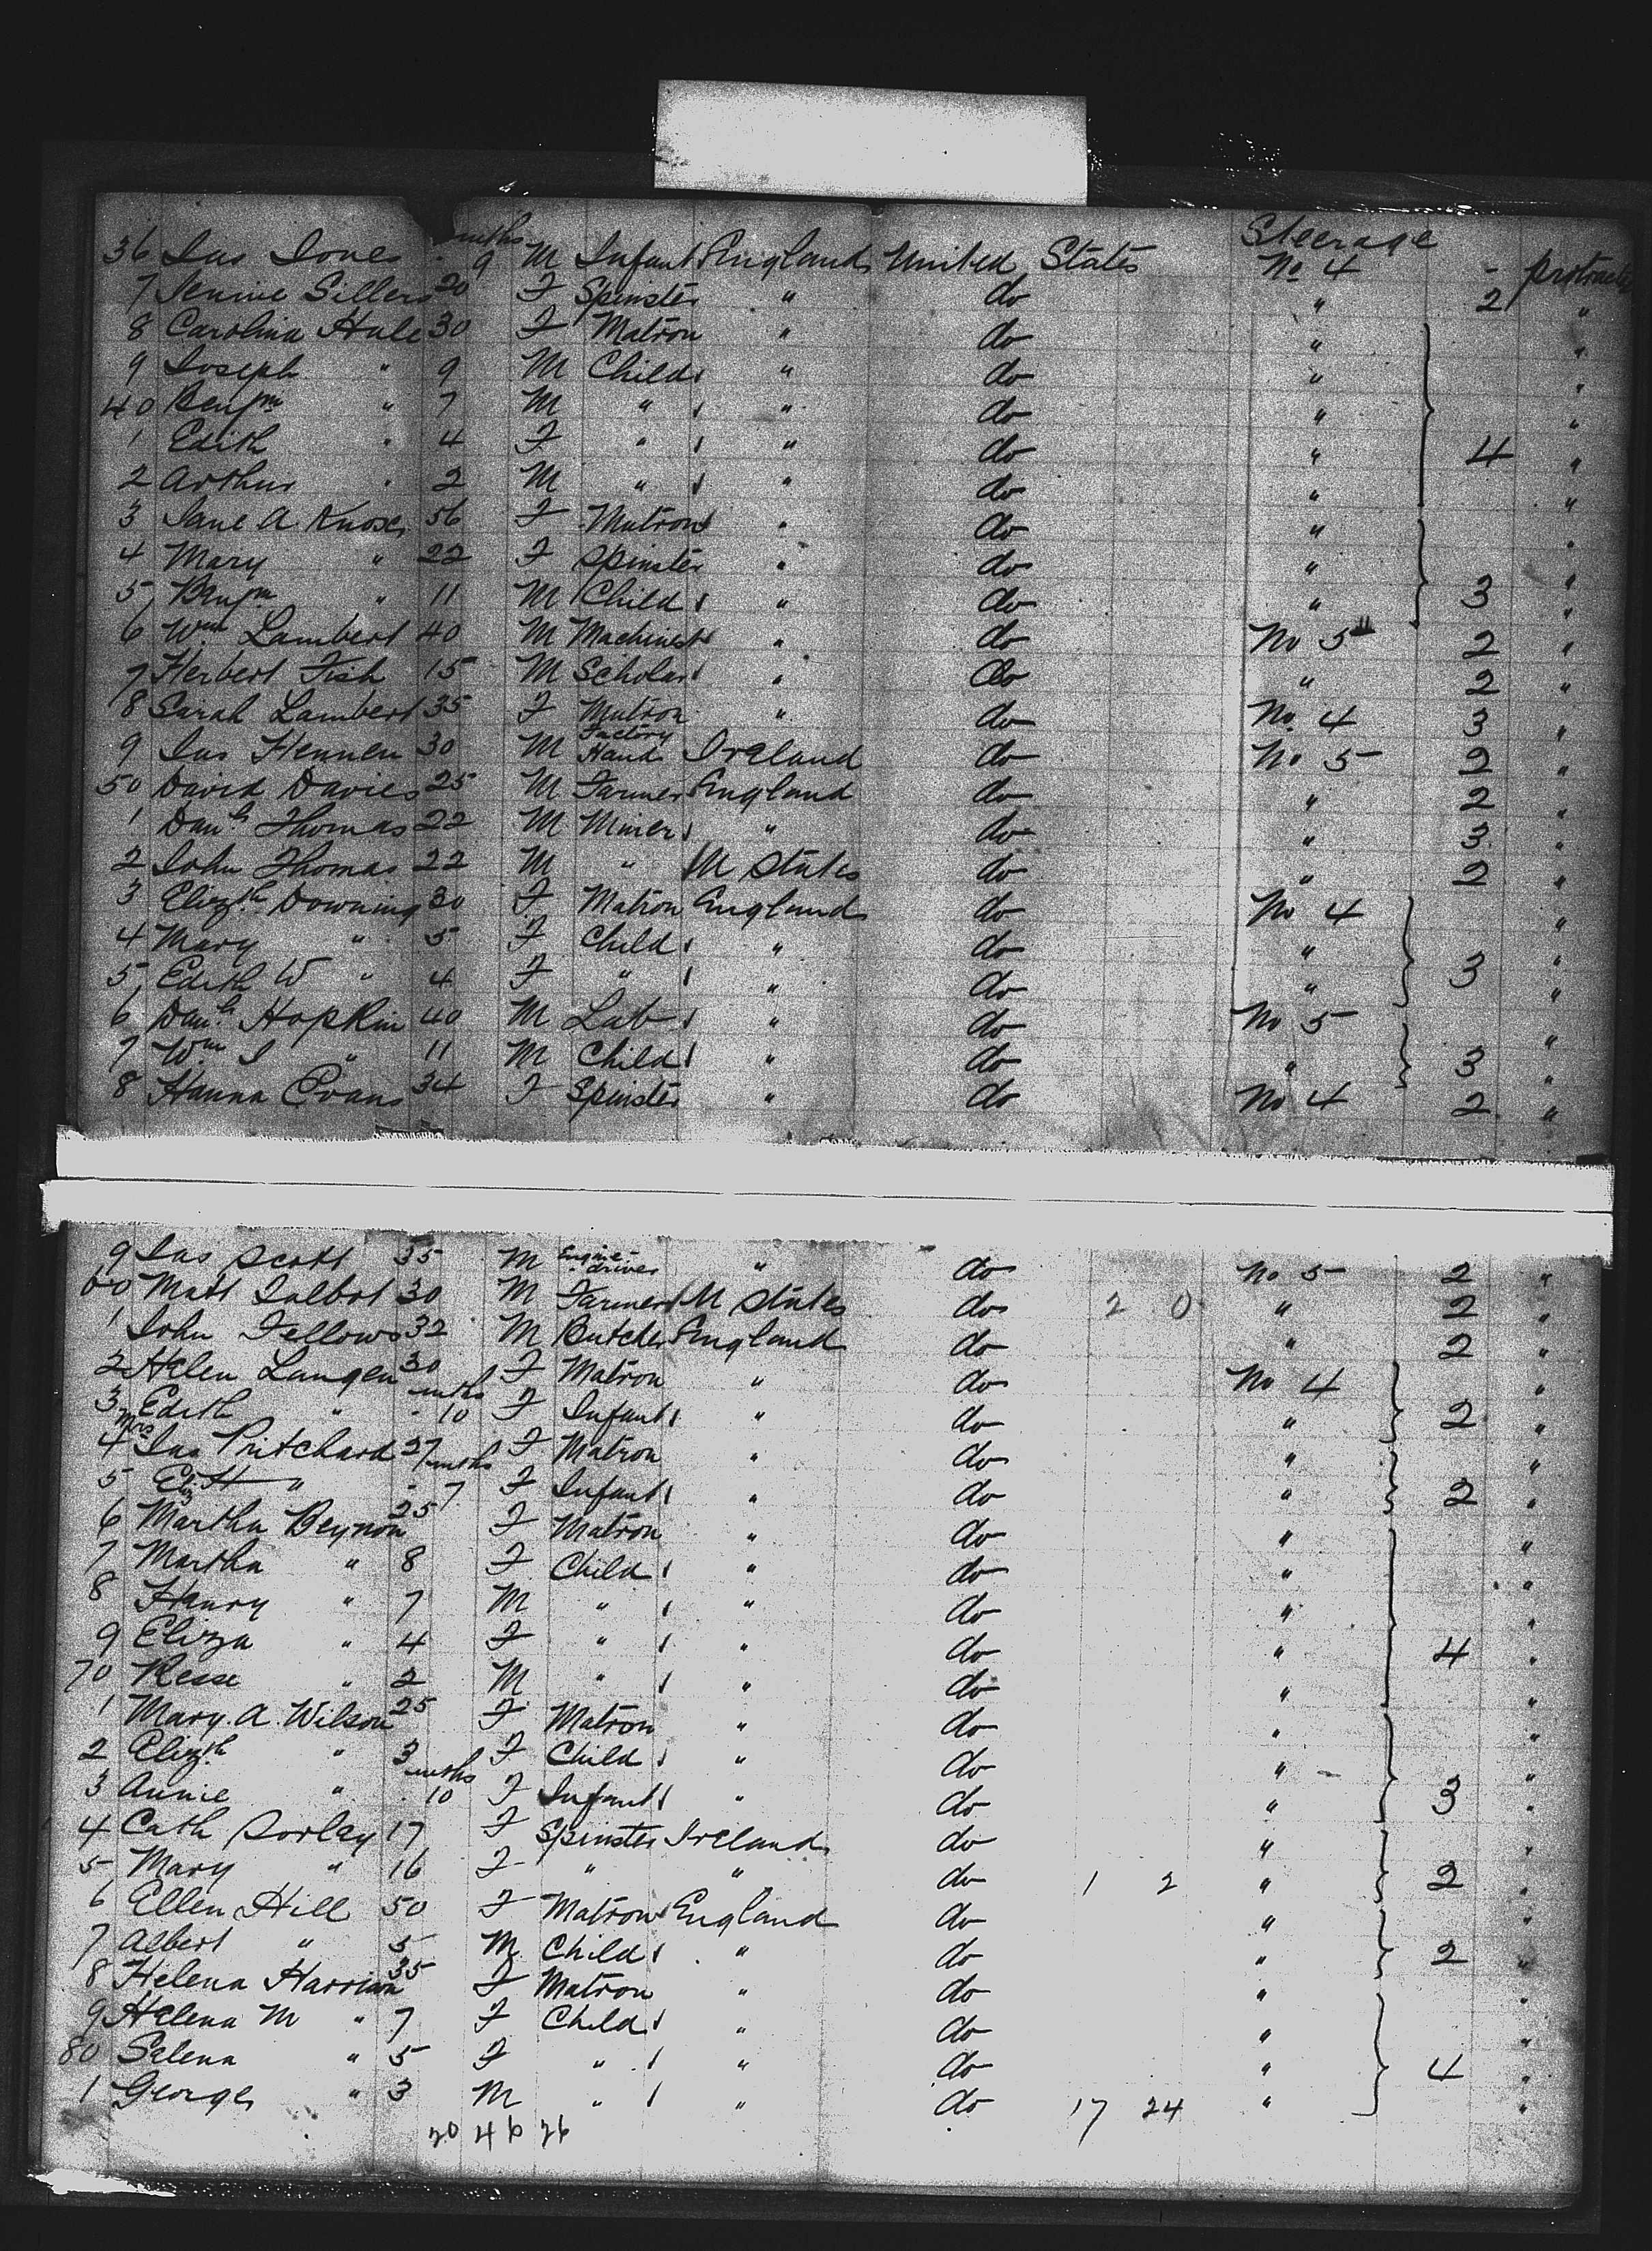 Steerage
36 Jas Jones mths 9 M Infant England United States No 4 - protracted
7 Jennie Sillers 20 F Spinster " do " 2 "
8 Carolina Hale 30 F Matron " do " "
9 Joseph " 9 M Child " do " "
40 Benjm " 7 M " " do " "
1 Edith " 4 F " " do " 4 "
2 Arthur " 2 M " " do " "
3 Jane A 56 F Matron " do " "
4 Mary " 22 F Spinster " do " "
5 Benjm " 11 M Child " do " 3 "
6 Wm Lambert 40 M Machinest " do No 5 2 "
7 Herbert Fish 15 M Scholar " do " 2 "
8 Sarah Lambert 35 F Matron " do No 4 3 "
9 Jas Hennen 30 M Factory Hand Ireland do No 5 2 "
50 David Davies 25 M Farmer England do " 2 "
1 Danl Thomas 22 M Miner " do " 3 "
2 John Thomas 22 M " U States do " 2 "
3 Elizth Downing 30 F Matron England do No 4 "
4 Mary " 5 F Child " do " "
5 Edith W " 4 F " " do " 3 "
6 Danl Hopkin 40 M Lab " do No 5 "
7 Wm J " 11 M Child " do " 3 "
8 Hanna Evans 34 F Spinster " do No 4 2 "
9 Jas Scott 35 M Engine-driver " do No 5 2 "
60 Matt Talbot 30 M Farmer U States do 2 0 " 2 "
1 John Fellows 32 M Butcher England do " 2 "
2 Helen Langen 30 F Matron " do No 4 "
3 Edith " mths 10 F Infant " do " 2 "
4 Mrs Jas Pritchard 27 F Matron " do " "
5 Eliz H " mths 7 F Infant " do " 2 "
6 Martha Beynon 25 F Matron " do " "
7 Martha " 8 F Child " do " "
8 Henry " 7 M " " do " "
9 Eliza " 4 F " " do " 4 "
70 Reese " 2 M " " do " "
1 Mary A. Wilson 25 F Matron " do " "
2 Elizth " 3 F Child " do " "
3 Annie " mths 10 F Infant " do " 3 "
4 Cath Sorley 17 F Spinster Ireland do " "
5 Mary " 16 F " " do 1 2 " 2 "
6 Ellen Hill 50 F Matron England do " "
7 Albert " 5 M Child " do " 2 "
8 Helena Harrison 35 F Matron " do " "
9 Helena M " 7 F Child " do " "
80 Selena " 5 F " " do " 4 "
1 George " 3 M " " do 17 24 " "
20 46 26